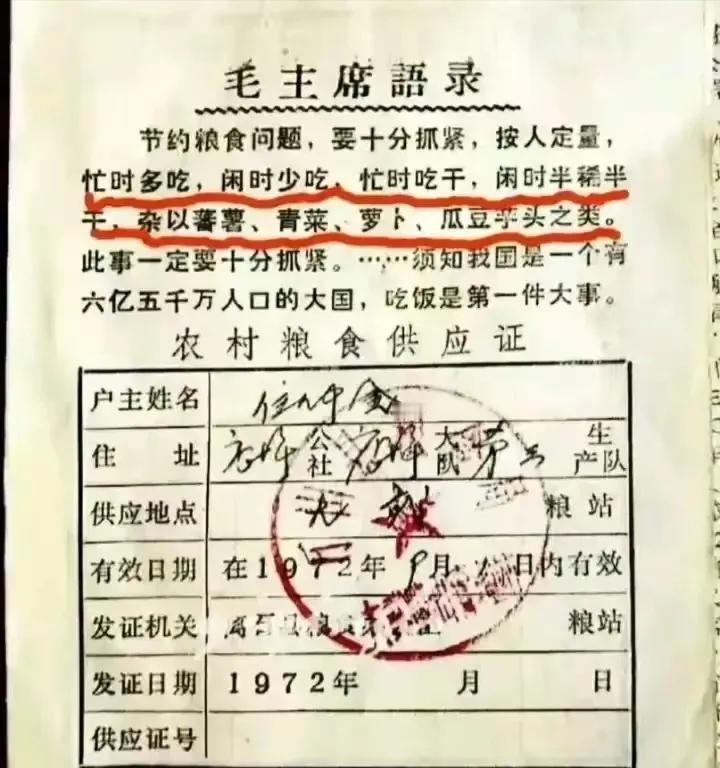 毛主席語录
节约粮食问题，要十分抓紧，按人定量，
忙时多吃，闲时少吃，忙时吃干，闲时半稀半
干，杂以蕃薯、青菜、萝卜、瓜豆芋头之类。
此事一定要十分抓紧。……须知我国是一个有
六亿五千万人口的大国，吃饭是第一件大事。
农村粮食供应证
户主姓名
住址 公社 大队 第三 生产队
供应地点 粮站
有效日期 在1972年 月 日内有效
发证机关 粮站
发证日期 1972年 月 日
供应证号